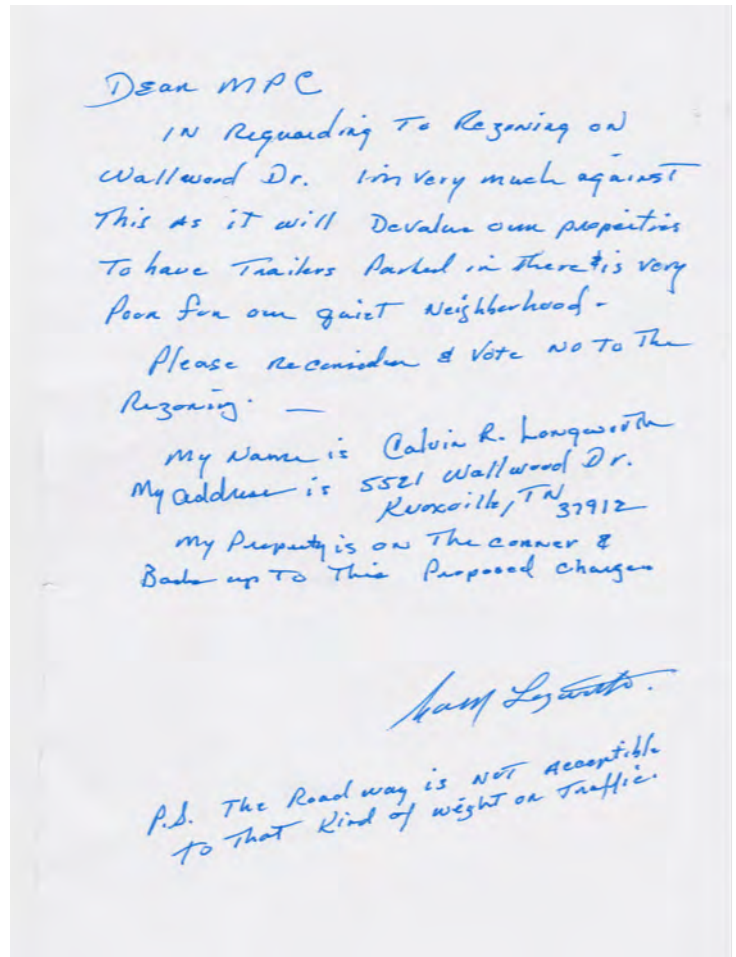 Dear MPC
IN Reguarding To Rezoning on
Wallwood Dr. I'm very much against
This As it will Devalue our properties
To have Trailers Parked in there & is very
Poor for our quiet Neighborhood -
Please reconsider & Vote No To The
Rezoning. —
My Name is Calvin R. Longworth
My address is 5521 Wallwood Dr.
Knoxville, TN
37912
My Property is on The corner &
Backs up To This Proposed changes
P.S. The Road way is NOT Acceptible
To That Kind of weight or Traffic.